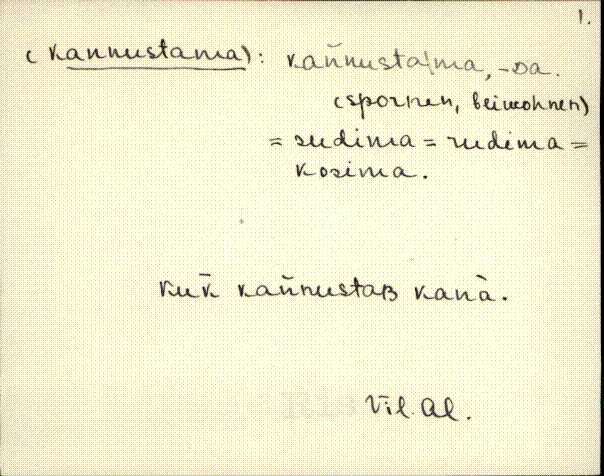 1.
(kannustama): kan̄nusta|ma, -da.
(spornen, beiwohnen)
= sudima = rudima =
kosima.
kuk̄ kan̄nustaʙ kanà.
Vil. Al.